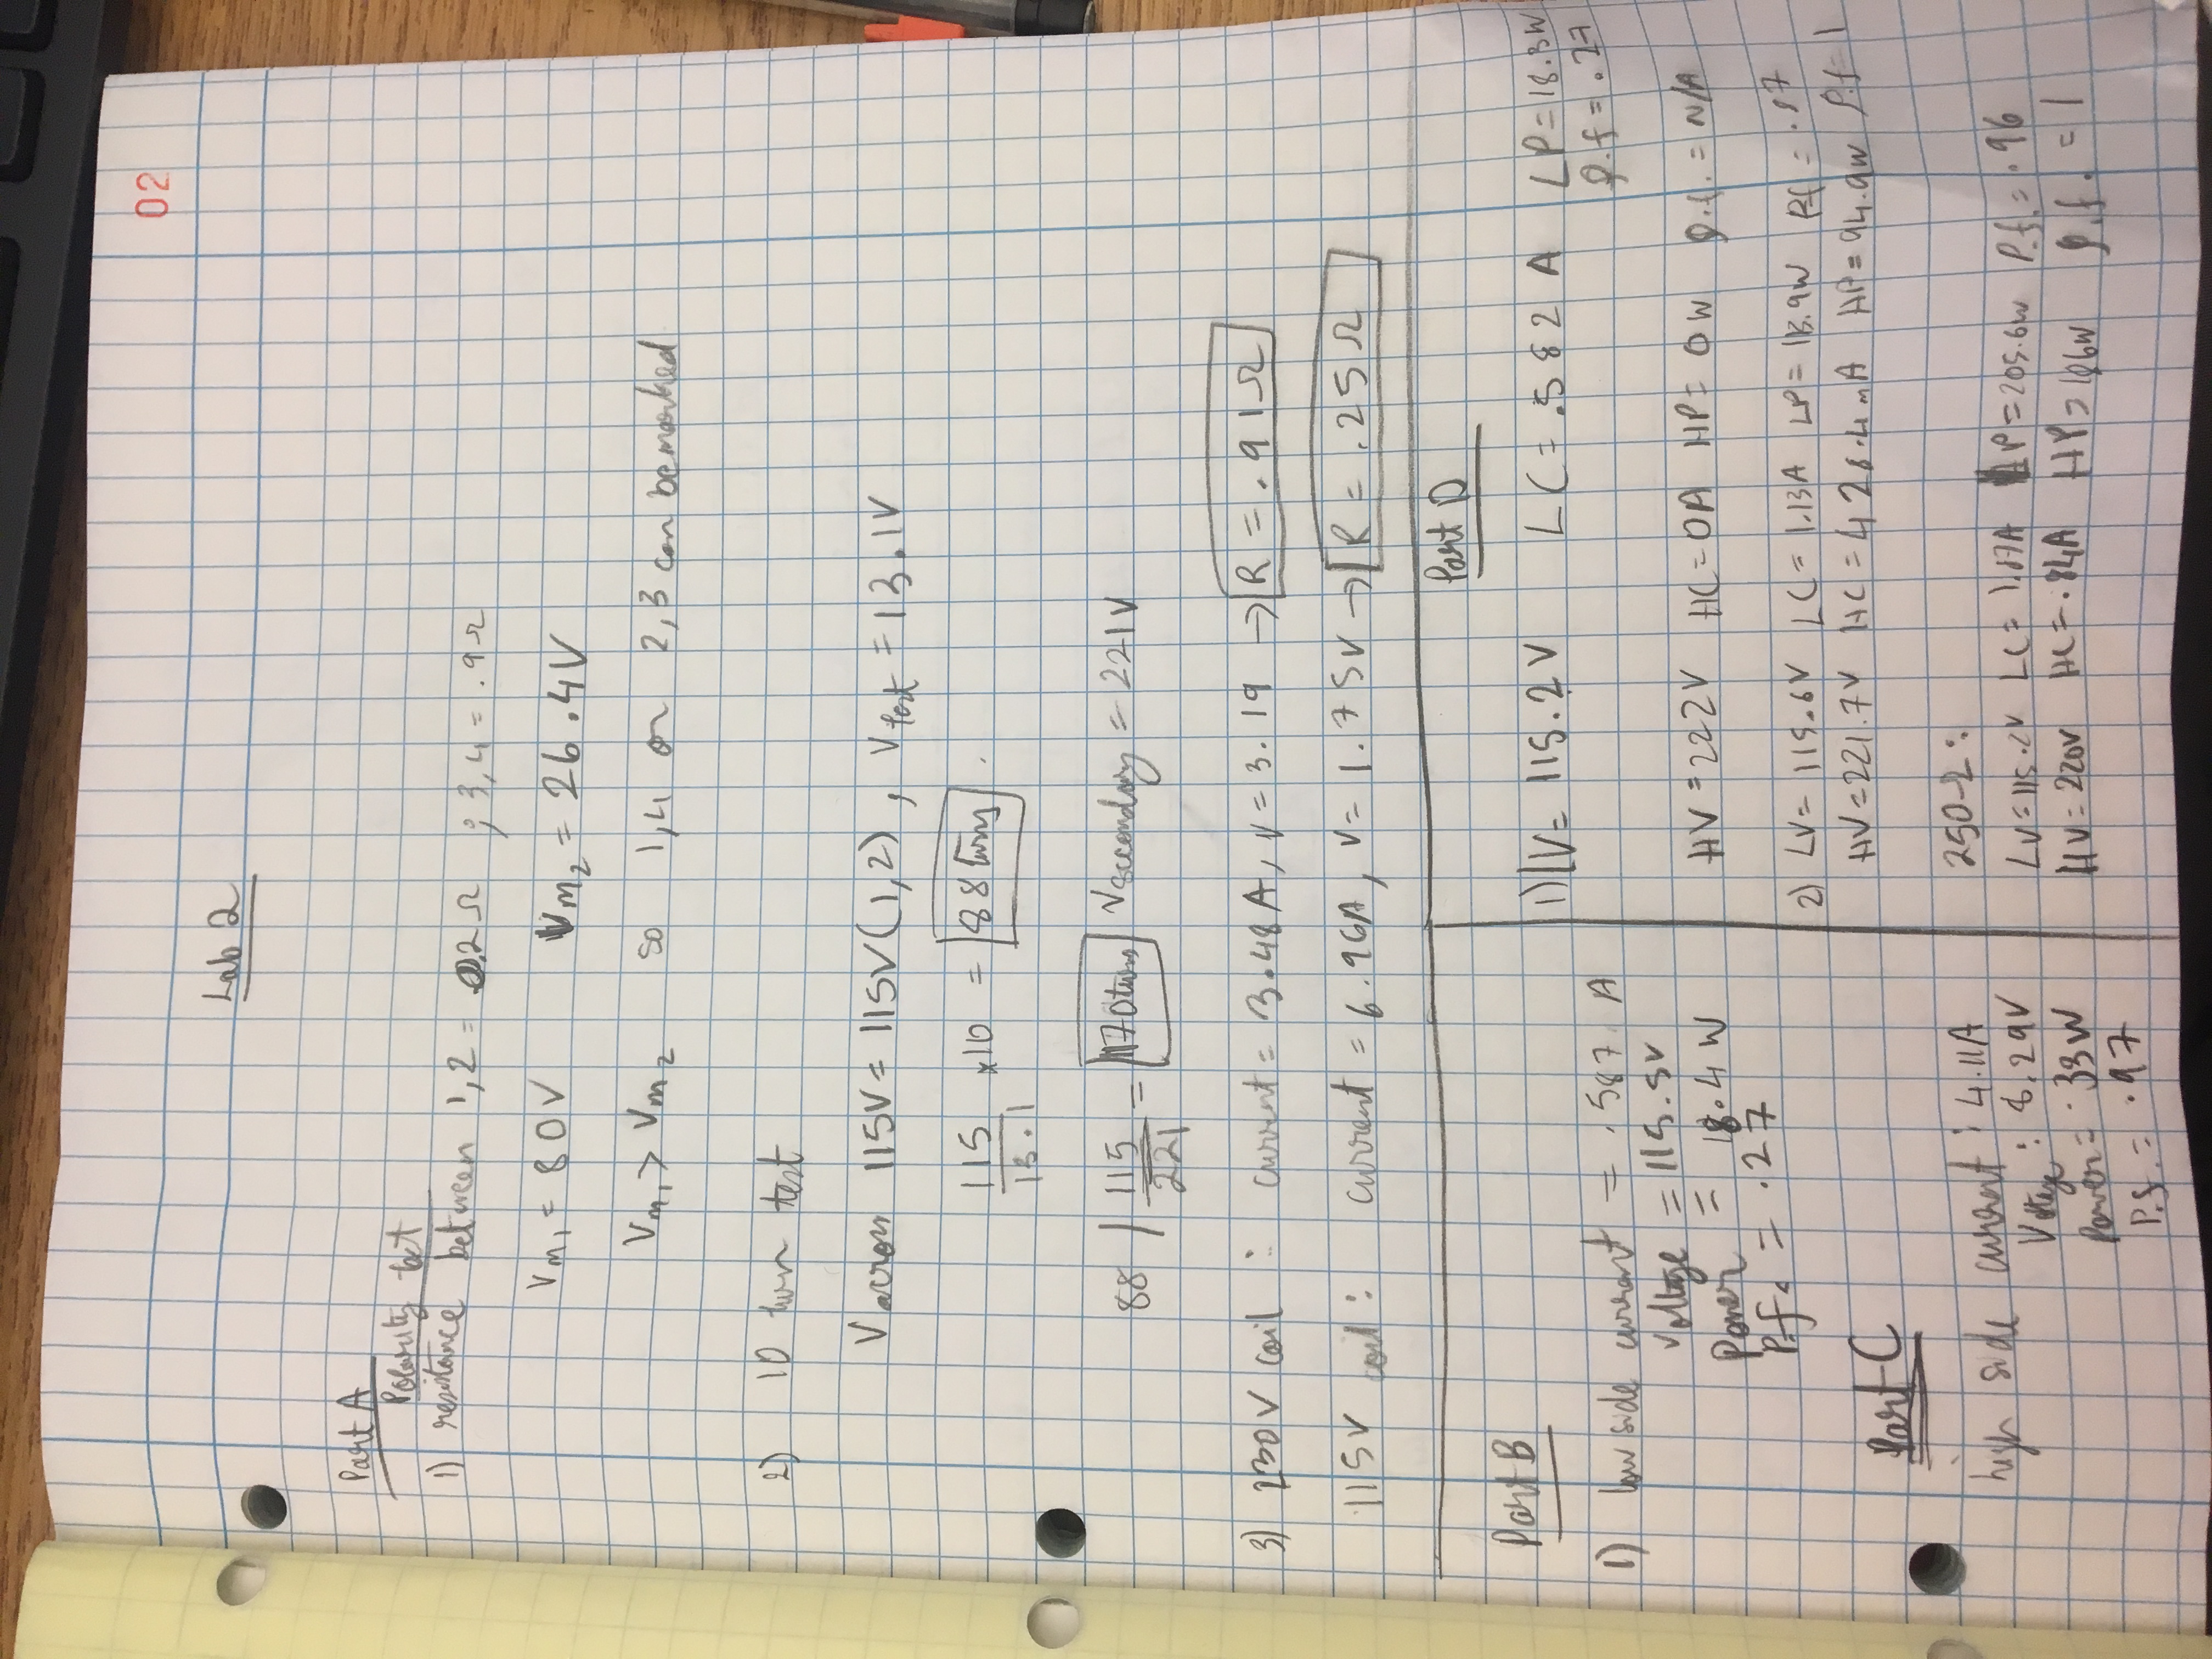 02
Lab 2
Part A
Polarity test
1) resistance between 1,2 = 0.2 Ω ; 3,4 = .9 Ω
Vm₁ = 80V Vm₂ = 26.4V
Vm₁ > Vm₂ so 1,4 or 2,3 can be marked
2) 10 turn test
V across 115V = 115V (1,2) , V test = 13.1V
115/13.1 x10 = 88 turns
88 / 115/221 = 170 turns V secondary = 221V
3) 230V coil : current = 3.48 A, V = 3.19 → R = .91Ω
115V coil : current = 6.96A, V = 1.75V → R = .25Ω
Part B
1) low side current = .587 A
Voltage = 115.5V
Power = 18.4 W
P.f. = .27
Part C
high side current : 4.11A
Voltage : 8.29V
Power = 33W
P.f. = .97
Part D
1) LV = 115.2 V LC = .582 A LP = 18.3W
P.f = .27
HV = 222V HC = 0A HP = 0W P.f. = N/A
2) LV = 115.6V LC = 1.13A LP = 113.9W P.f = .87
HV = 221.7V HC = 428.4mA HP = 94.9W P.f = 1
250Ω :
LV = 115.2V LC = 1.87A LP = 205.6W P.f. = .96
HV = 220V HC = .84A HP = 186W P.f. = 1